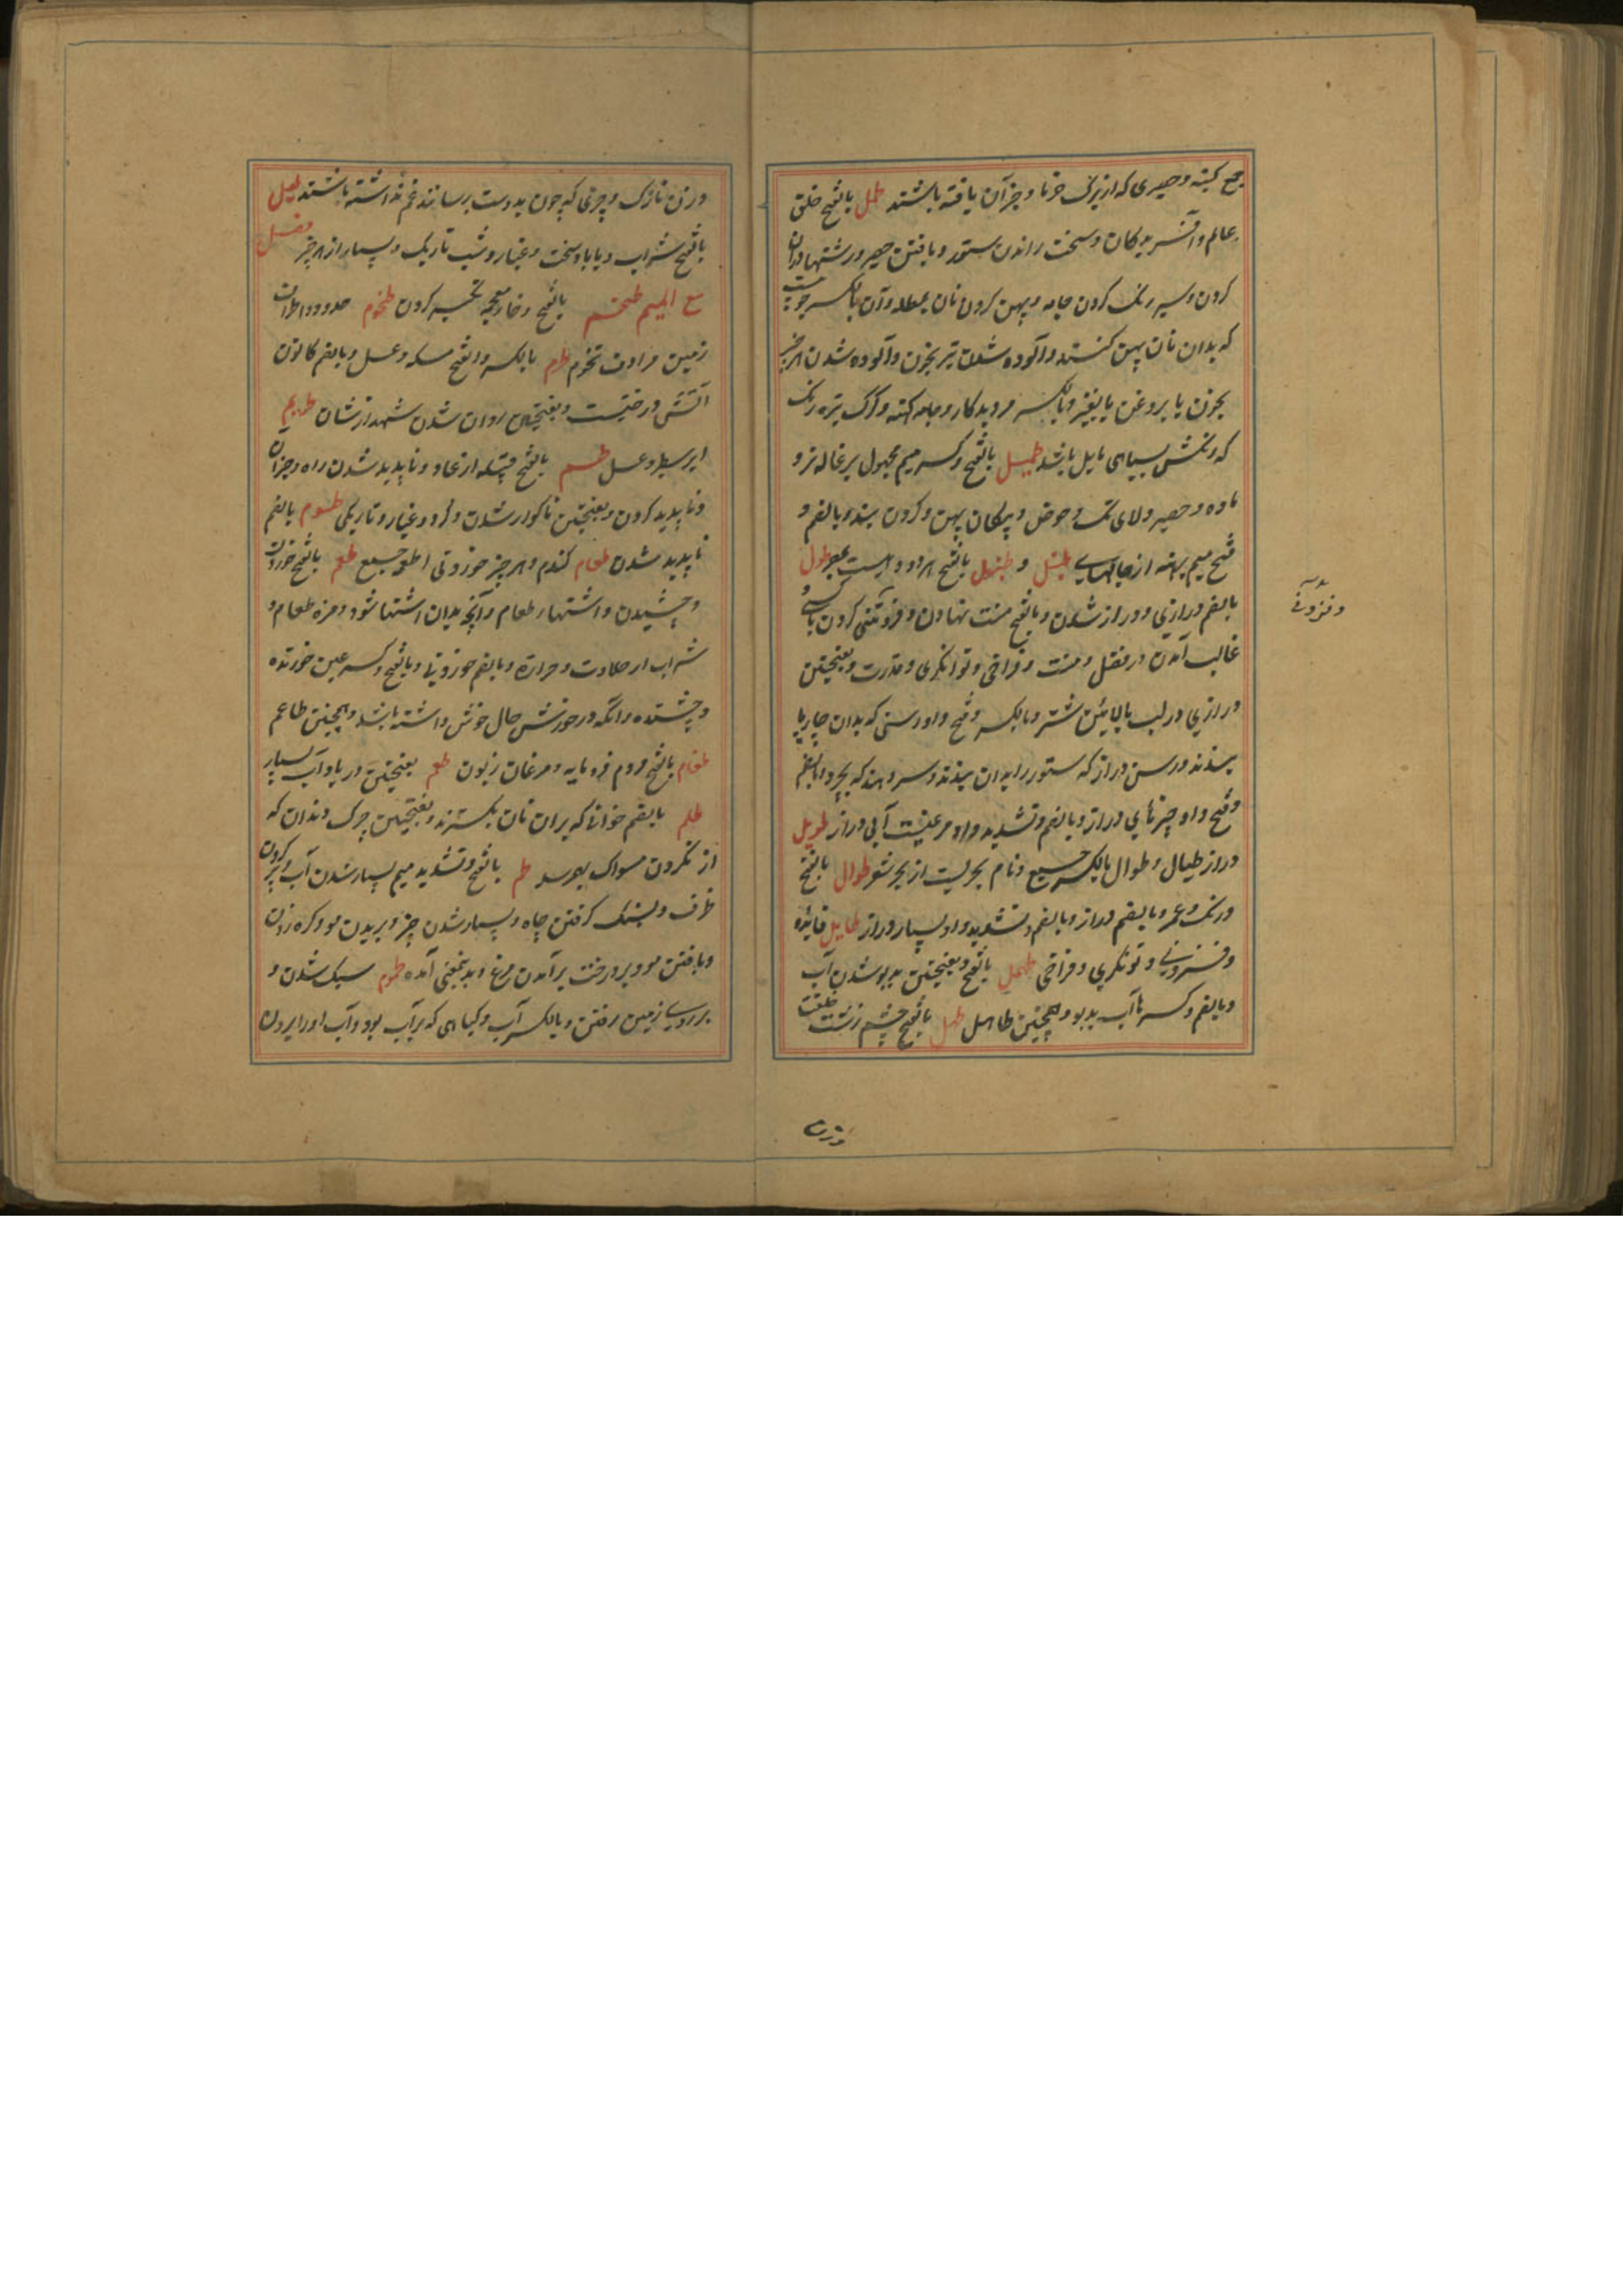 جمع کبته و حصیری که از برک خرما و جز آن بافته باشند طمل بالفتح خلق
عالم و آفریدکان و سخت راندن ستور و بافتن حصیر و رشتها دران
کردن و سیر رنک کردن جامه و پهن کردن نان بمطمله و آن بالکسر چوبیست
که بدان نان پهن کنند و آلوده شدن تیر بخون و آلوده شدن هر چیز
بخون یا بروغن یا بغیر و بالکسر مرد بدکار و جامه کهنه و کرک تیره رنک
که رنکش بسیاهی مایل باشد طمیل بالفتح و کسر میم مجهول بزغاله نر و
ماده و حصیر و لای تک حوض و پیکان پهن و کردن بند و بالضم و
فتح میم برهنه از جامهای طنبل و طنبول بالفتح هر دو دهیست بمصر طول
بالضم درازی و دراز شدن و بالفتح منت نهادن و فزونی کردن با کسی و
غالب آمدن در فضل و منت و فراخی و توانکری و قدرت و بفتحتین
درازی در لب بالایین شتر و بالکسر و فتح واو رسنی که بدان چارپا
بندند و رسن دراز که ستور را بدان بندند و سر دهند که بچرد و بالضم
و فتح واو چیزهای دراز و بالضم و تشدید واو مرغیست آبی دراز طویل
دراز طیال و طوال بالکسر جمع و نام بحریست از بحر شعر طوال بالفتح
درنک و عمر و بالضم دراز و بالضم و تشدید واو بسیار دراز طایل فائده
و فزونی و توانکری و فراخی طهل بالفتح و بفتحتین بدبو شدن آب
و بالضم و کسر ها آب بدبو و همچنین طاهل طهل بالفتح جسم زشت خلقت
و فزونی
وزن
وزن نازک و چیزی که چون بدوست برسانند غم نداشته باشند طیل
بالفتح شراب و یا باد سخت و غبار و شب تاریک و بسیار از هر چیز فصل
مع المیم طخم بالفتح و خاء معجمه تکبر کردن طخوم حدود و اطراف
زمین مرادف تخوم طرم بالکسر و الفتح مسکه و عسل و بالضم کانون
آتش و درختیست و بفتحتین روان شدن شهد از شان طریم
ابر سطبر و عسل طسم بالفتح قبیله از عاد و ناپدید شدن راه و جز آن
و ناپدید کردن و بفتحتین ناکوار شدن و کرد و غبار و تاریکی طسوم بالضم
ناپدید شدن طعام کندم و هر چیز خوردنی اطعمه جمع طعم بالفتح خوردن
و چشیدن و اشتهاء طعام و آنچه بدان اشتها شود و مزه طعام و
شراب از حلاوت و مرارة و بالضم خوردنیها و بالفتح و کسر عین خورنده
و چشنده و آنکه در خورش حال خوش داشته باشد و همچنین طاعم
طغام بالفتح مردم فرومایه و مرغان زبون طغم بفتحتین دریا و آب بسیار
طلم بالضم خوانها که بران نان بکسترند و بفتحتین چرک دندان که
از نکردن مسواک بهم رسد طم بالفتح و تشدید میم بسیار شدن آب و پر کردن
ظرف و بشک کرفتن چاه و بسیار شدن چیز و بریدن مو و کره زدن
و بافتن مو و بر درخت برآمدن مرغ و بدینمعنی آمده طموم سبک شدن و
بر روی زمین رفتن و بالکسر آب و کیاهی که بر آب بود و آب او را بر روان